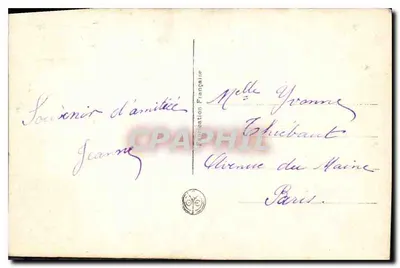 Souvenir d'amitiée
Jeanne
Fabrication Française
Melle Yvonne
Thiébaut
Avenue du Maine
Paris.
CPAPHIL